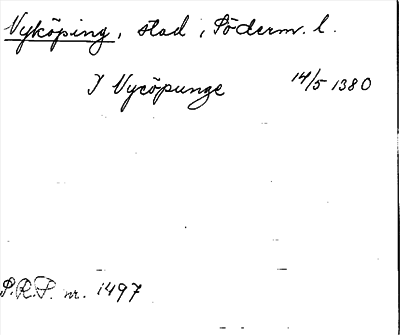 Nyköping, stad, Söderm. l.
I Nycöpunge 14/5 1380
P.R.P. nr. 1497